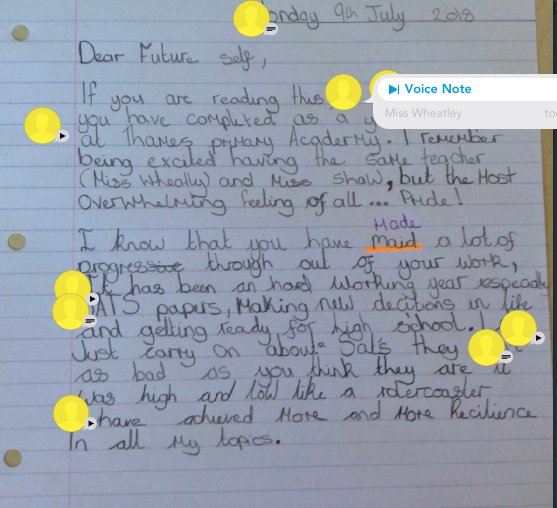 onday 9th July 2018
Dear Future self,
If you are reading this
Voice Note
you have completed as a y
Miss Wheatley too
at Thames primary Acadermy. I remember
being excited having the same teacher
(Miss Wheatly) and Miss Shaw, but the Most
Overwhelming feeling of all ... Pride!
Made
I know that you have maid a lot of
progressive through out of your work,
It has been an hard working year respecialy
SATS papers, Making new decitions in life
and getting ready for high school.
Just carry on about Sats they
as bad as you think they are it
was high and low like a rolercoaster
have achieved More and More Recilience
In all My topics.